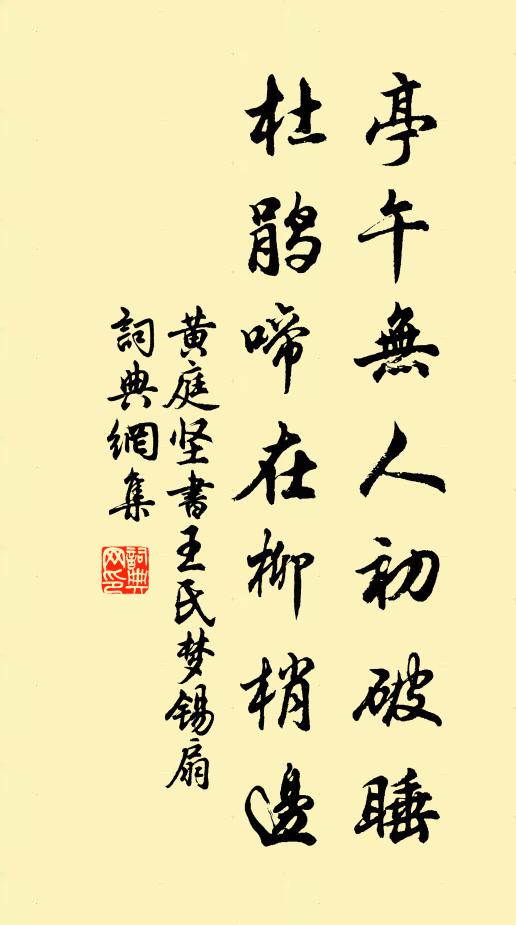 亭午無人初破睡
杜鹃啼在柳梢邊
黄庭坚書王氏梦锡扇
詞典網集
詞典网印